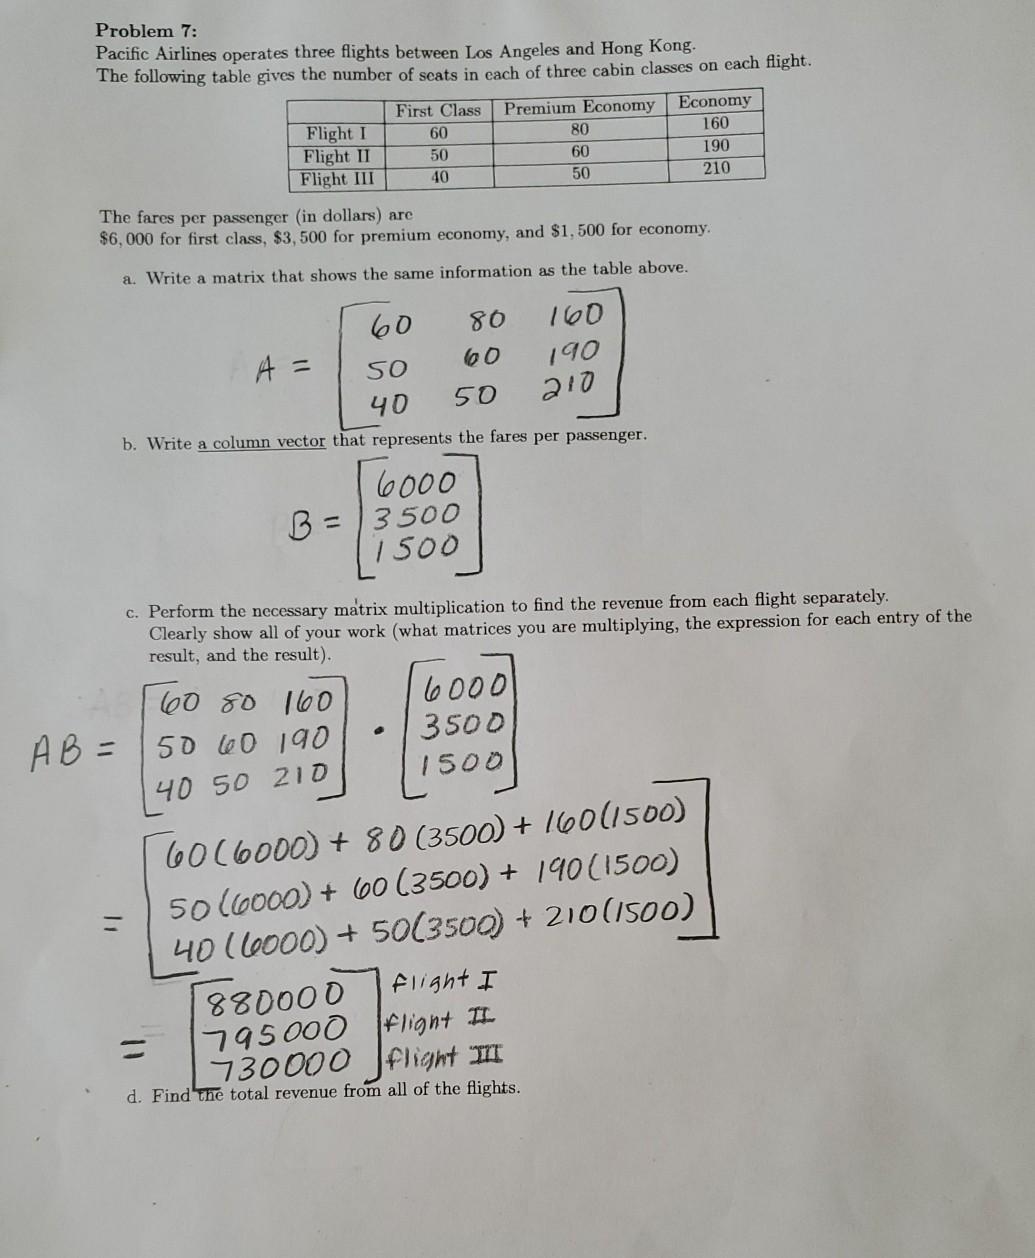 Problem 7:
Pacific Airlines operates three flights between Los Angeles and Hong Kong.
The following table gives the number of seats in each of three cabin classes on each flight.
First Class Premium Economy Economy
Flight I 60 80 160
Flight II 50 60 190
Flight III 40 50 210
The fares per passenger (in dollars) are
$6,000 for first class, $3,500 for premium economy, and $1,500 for economy.
a. Write a matrix that shows the same information as the table above.
60 80 160
A = 50 60 190
40 50 210
b. Write a column vector that represents the fares per passenger.
6000
B = 3500
1500
c. Perform the necessary matrix multiplication to find the revenue from each flight separately.
Clearly show all of your work (what matrices you are multiplying, the expression for each entry of the
result, and the result).
60 80 160 6000
AB = 50 60 190 · 3500
40 50 210 1500
60(6000) + 80(3500) + 160(1500)
= 50(6000) + 60(3500) + 190(1500)
40(6000) + 50(3500) + 210(1500)
880000 flight I
= 795000 flight II
730000 flight III
d. Find the total revenue from all of the flights.